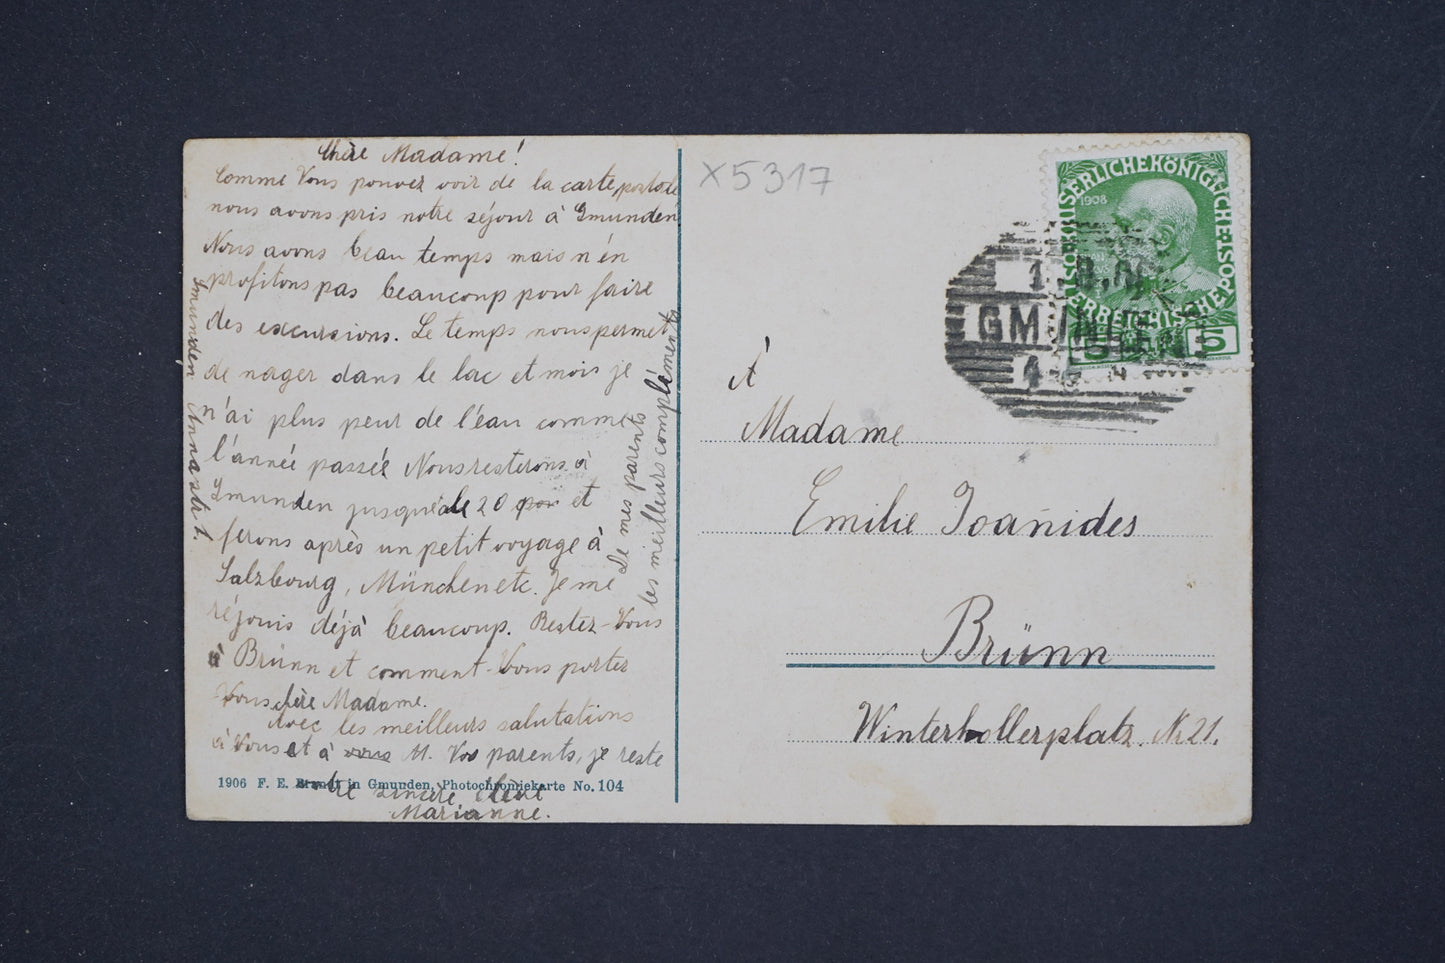 Chère Madame!
Comme Vous pouvez voir de la carte postale
nous avons pris notre séjour à Gmunden
Nous avons beau temps mais n'én
profitons pas beaucoup pour faire
des excursions. Le temps nous permet
de nager dans le lac et mois je
n'ai plus peur de l'eau comme
l'année passée Nous resterons à
Gmunden jusqu'à le 20 et
ferons après un petit voyage à
Salzbourg, München etc. Je me
réjouis déjà beaucoup. Restez-Vous
à Brünn et comment Vous portez
Vous chère Madame.
Avec les meilleurs salutations
à Vous et à vous M. Vos parents, je reste
votre sincère élève
Marianne.
De mes parents
les meilleurs compléments
Gmunden
1906 F. E. Brandt in Gmunden, Photochromiekarte No. 104
X5317
KAISERLICHEKÖNIGLICHE ÖSTERREICHISCHE POST
1908
5 5
GMUNDEN
À
Madame
Emilie Joanides
Brünn
Winterhollerplatz. Nr 21.